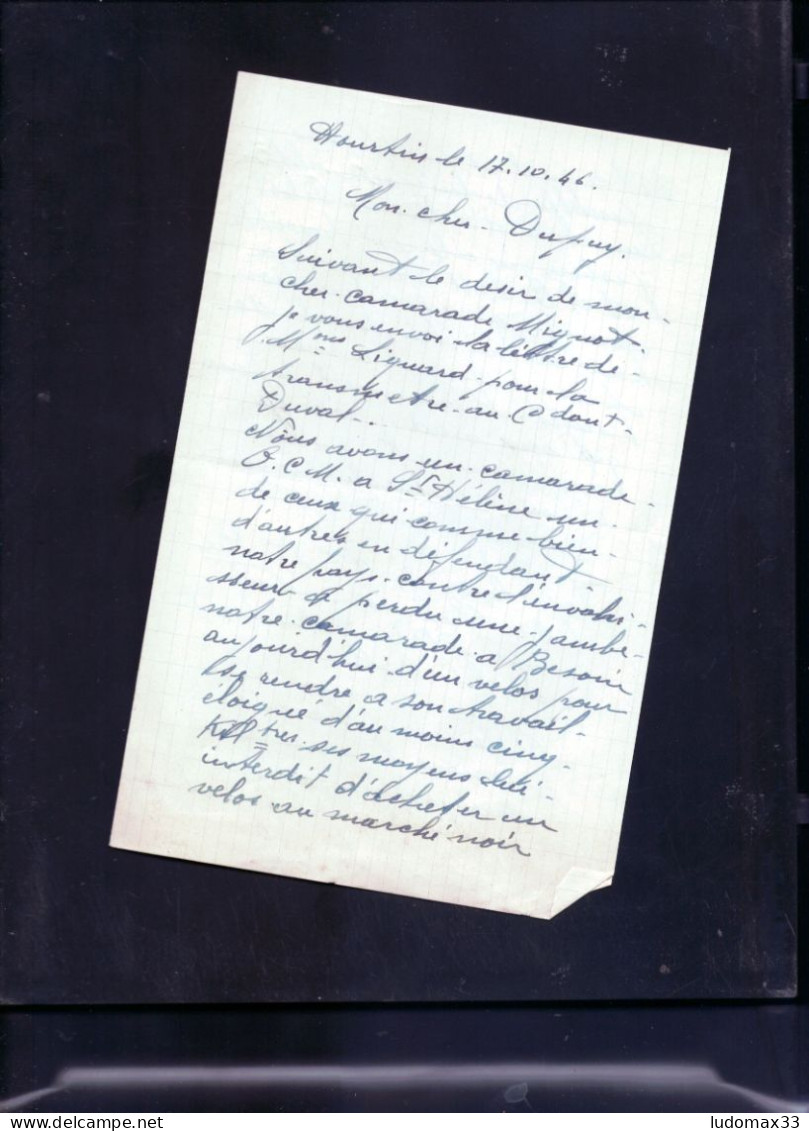 Hourtin le 17.10.46.
Mon cher Dupuy.
Suivant le desir de mon
cher camarade Mignot.
je vous envoi la lettre de
Mme Liquard pour la
transmetre au Cdant
Duval..
Nous avons un camarade
O.C.M. a St Hélène un
de ceux qui comme bien
d'autres en défendant
notre pays contre l'envahi-
sseur a perdu une jambe
notre camarade a Besoin
aujourd'hui d'un velos pour
se rendre a son travail
éloigné d'au moins cinq
Kiltres ses moyens lui
interdit d'acheter un
velos au marché noir
delcampe.net
ludomax33